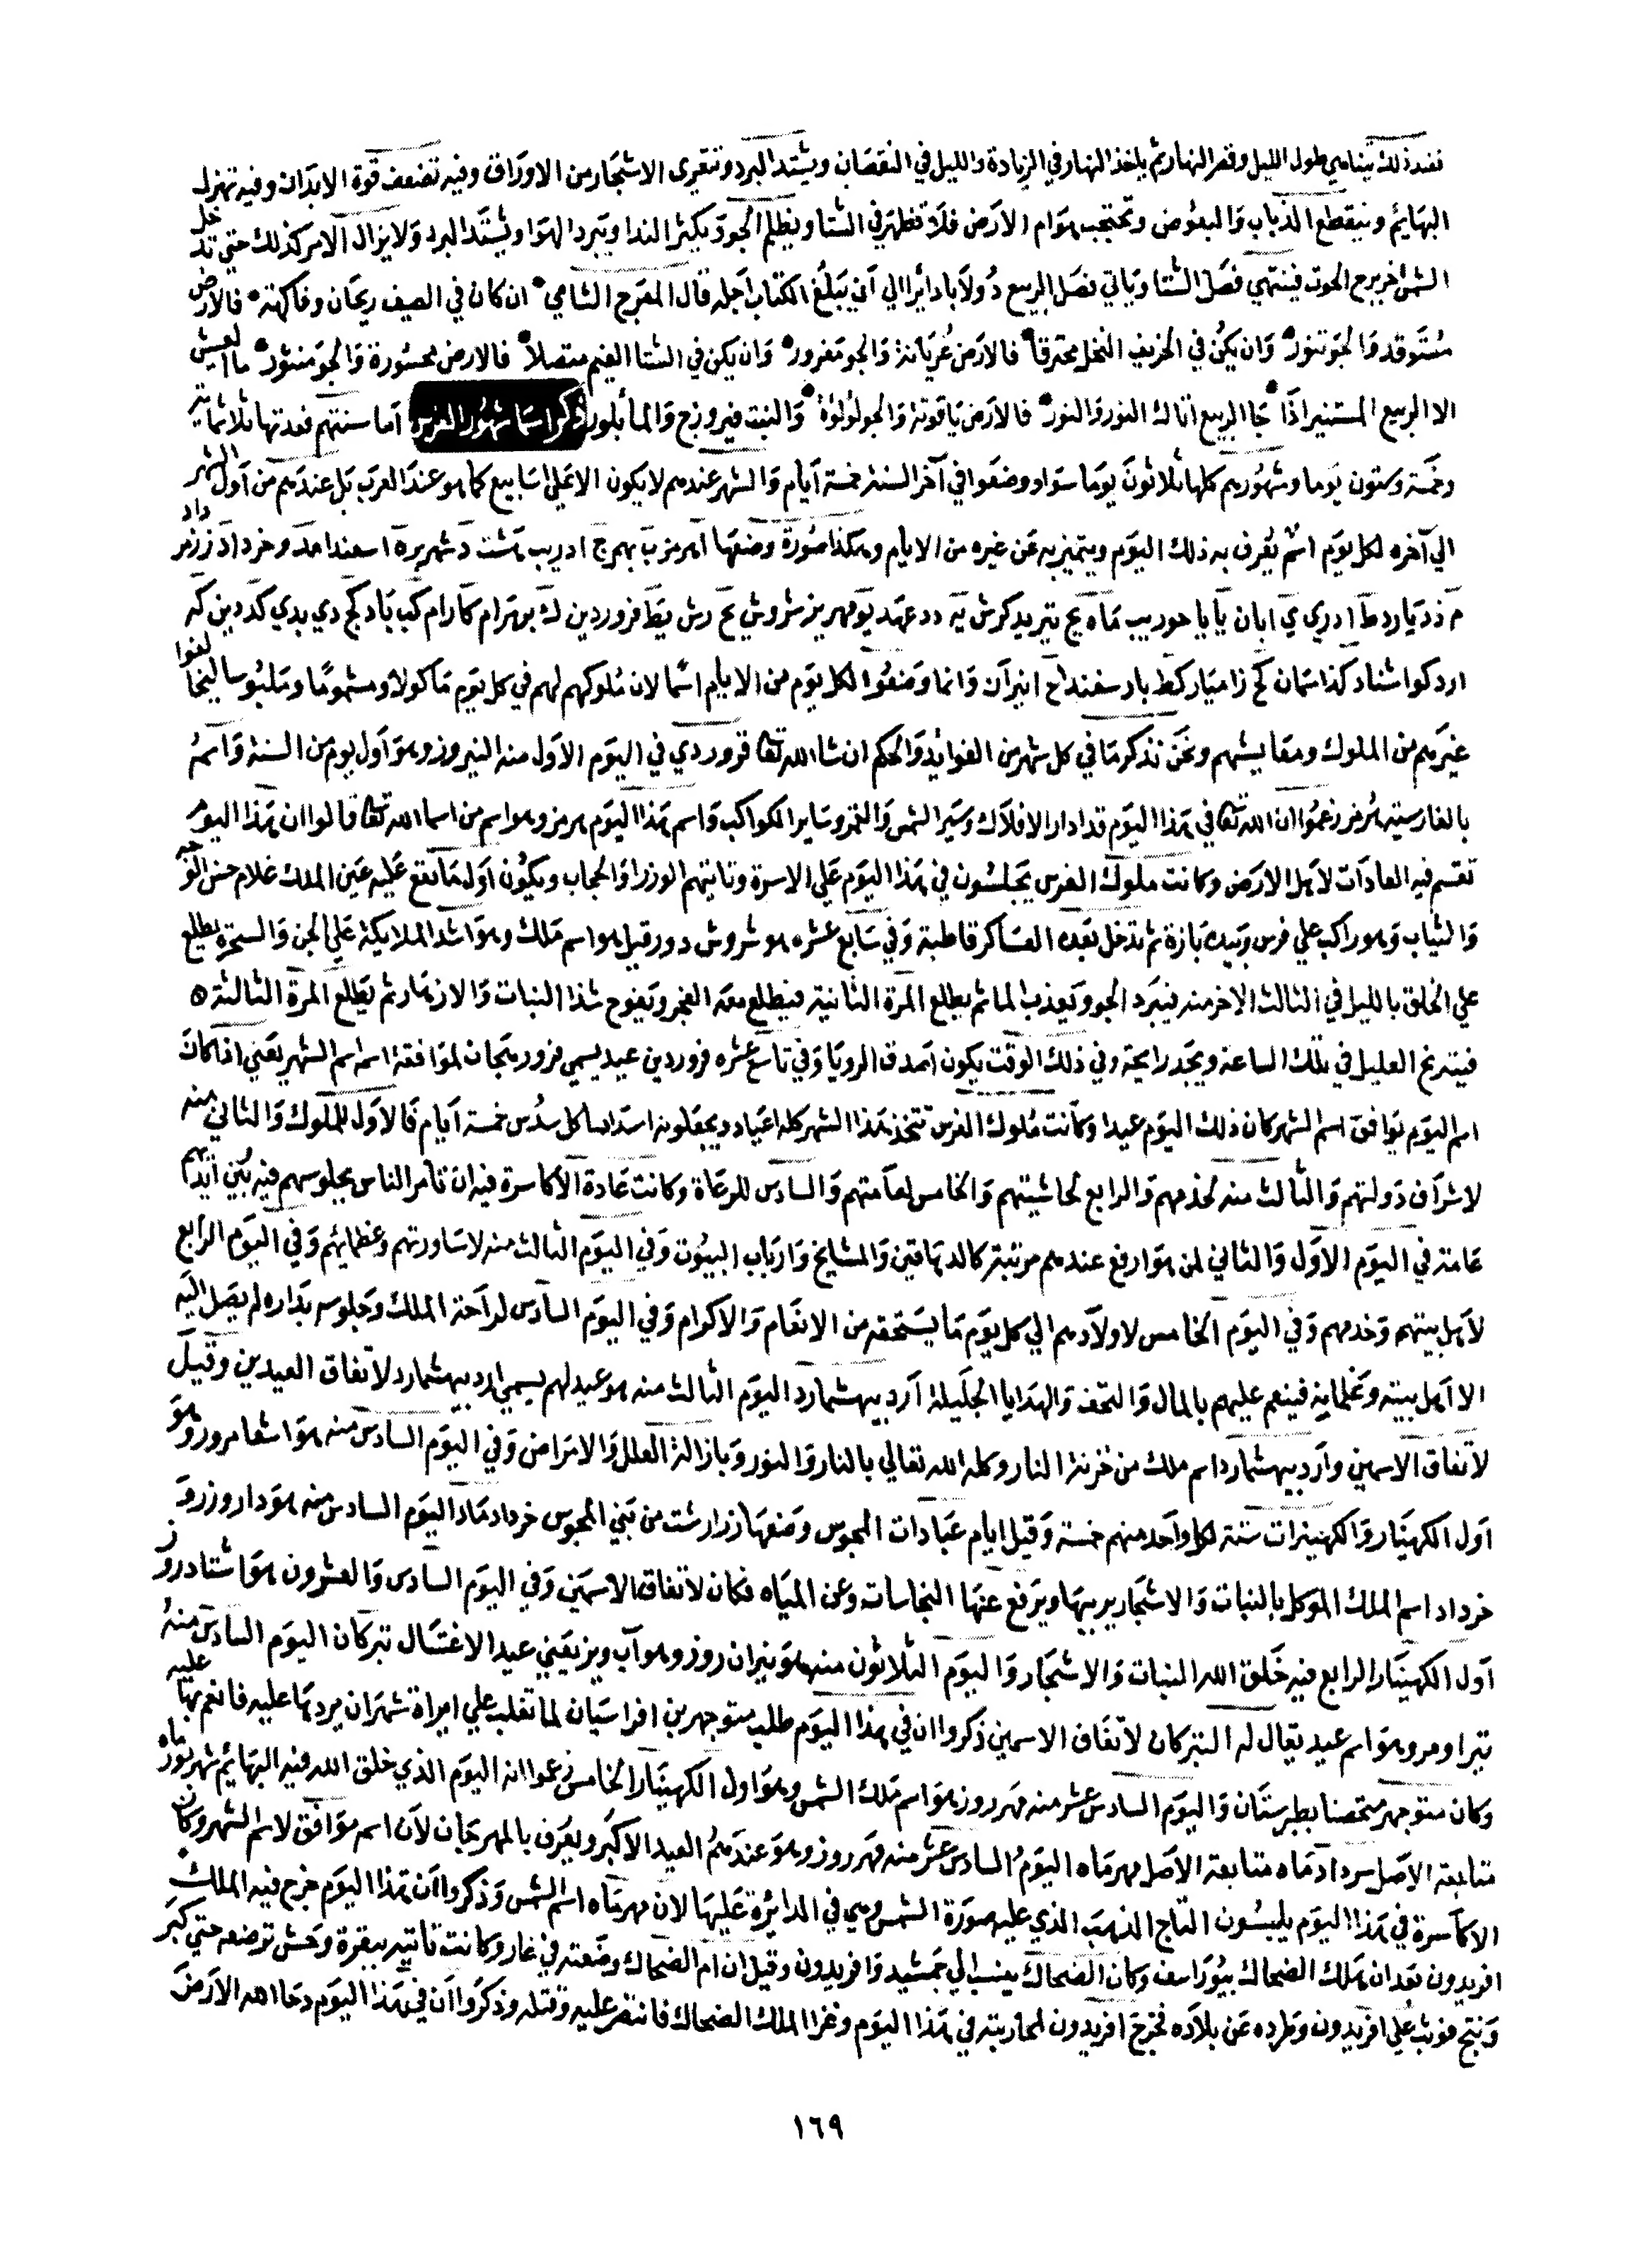 فعند ذلك يتناهي طول الليل وقصر النهار ثم ياخذ النهار في الزيادة والليل في النقصان ويشتد البرد وتتعري الاشجار من الاوراق وفيه تضعف قوة الابدان وفيه تهزل
البهائم وينقطع الذباب والبعوض وتحتجب هوام الارض فلا تظهر في الشتا ويظلم الجو ويكثر الندا ويبرد الهوا ويشتد البرد ولا يزال الامر كذلك حتي تدخل
الشمس اخر برج الحوت فينتهي فصل الشتا وياتي فصل الربيع دولابا دائرا الي ان يبلغ الكتاب اجله قال المعرج الشامي ان كان في الصيف ريحان وفاكهة فالارض
مستوقد والجو تنور وان يكن في الخريف النخل محترقا فالارض عريانة والجو مغرور وان يكن في الشتا الغيم متصلا فالارض محسورة والجو منثور ما العيش
الا الربيع المستنير اذا جا الربيع اتاك النور والنور فالارض ياقوتة والجو لؤلؤة والنبت فيروزج والما بلور ذكر اسما شهور الفرس اما سنتهم فعدتها ثلاثماية
وخمسة وستون يوما وشهورهم كلها ثلاثون يوما سواد وضعوا في آخر السنة خمسة ايام والشهر عندهم لا يكون الا علي اسابيع كما هو عند العرب بل عندهم من اول الشهر
الي آخره لكل يوم اسم يعرف به ذلك اليوم ويتميز به عن غيره من الايام وهكذا صورة وضعها ا هرمز ب بهم ج ادريب هشت د شهريره اسفندامد و خرداد ز زمرداد
م ذديار د ط ادري ي ابان يا يا حور يب ماه يج تير يد كرش يه دد عهد يو مهر يز شروش يح رش يط فروردين ك بو بهرام كا رام كب باد كج دي بدي كد دين كه
ارد كو اشتاد كذ اسمان كح زامياركط بارسفنداح انيران وانما وضعوا لكل يوم من الايام اسما لان ملوكهم لهم في كل يوم ماكولا ومشموما وملبوسا ليخالفوا
غيرهم من الملوك ومعايشهم ونحن نذكر ما في كل شهر من الفوائد والحكم ان شا الله تعا فروردي في اليوم الاول منه النيروز وهو اول يوم من السنة واسمه
بالفارسية هرمز زعموا ان الله تعا في هذا اليوم قد ادار الافلاك وسير الشمس والقمر وساير الكواكب واسم هذا اليوم هرمز وهو اسم من اسما الله تعا قالوا ان هذا اليوم
تقسم فيه العادات لاهل الارض وكانت ملوك الفرس يجلسون في هذا اليوم علي الاسرة وتاتيهم الوزرا والحجاب ويكون اول ما تقع عليه عين الملك غلام حسن الوجه
والثياب وهو راكب علي فرس وبيده بازة ثم تدخل بعده العساكر قاطبة وفي سابع عشره هو شروش دور قيل هو اسم ملك وهو اشد الملايكة علي الجن والسحرة يطلع
علي الخلق بالليل في الثالث الاخر منه فيبرد الجو ويعذب الما ثم يطلع المرة الثانية فيطلع معه الفجر ويفوح شذا النبات والازهار ثم يطلع المرة الثالثة
فيترنح العليل في تلك الساعة ويجد رايحة وفي ذلك الوقت يكون اصدق الرويا وفي تاسع عشره فروردين عيد يسمي فرورجان لموافقة اسمه اسم الشهر يعني اذا كان
اسم اليوم يوافق اسم الشهر كان ذلك اليوم عيدا وكانت ملوك الفرس تتخذ هذا الشهر كله اعياد ويجعلونه اسداسا كل سدس خمسة ايام فالاول للملوك والثاني منه
لاشراف دولتهم والثالث منه لخدمهم والرابع لحاشيتهم والخامس لعامتهم والسادس للرعاة وكانت عادة الاكاسرة فيه ان تامر الناس بجلوسهم فيه بين ايديهم
عامة في اليوم الاول والثاني لمن هو ارفع عندهم مرتبة كالدهاقين والمشايخ وارباب البيوت وفي اليوم الثالث منه لاساورتهم وعظمائهم وفي اليوم الرابع
لاهل بيتهم وخدمهم وفي اليوم الخامس لاولادهم الي كل يوم ما يستحقه من الانعام والاكرام وفي اليوم السادس لراحة الملك وجلوسه بداره لم يصل اليه
الا اهل بيته وغلمانه فينعم عليهم بالمال والتحف والهدايا الجليلة ارديبهشمارد اليوم الثالث منه هو عيد لهم يسمي ارديبهشمارد لاتفاق العيدين وقيل
لاتفاق الاسمين وارديبهشمارد اسم ملك من خزنة النار وكله الله تعالي بالنار والنور وبازالة العلل والامراض وفي اليوم السادس منه هو اشعامرور وهو
اول الكهنبار والكهنبرات ستة لكل واحد منهم خمسة وقيل ايام عبادات المجوس وضعها زرارشت من بني المجوس خرداد ماد اليوم السادس منه هو دار وزرو
خرداد اسم الملك الموكل بالنبات والاشجار يربيها ويرفع عنها النجاسات وعن المياه فكان لاتفاق الاسمين وفي اليوم السادس والعشرون هو اشتادروز
اول الكهنبار الرابع فيه خلق الله النبات والاشجار واليوم الثلاثون منه هو نيران روز وهو آب ويزيعني عيد الاغتسال تيركان اليوم السادس منه
تيرا ومر وهو اسم عيد يقال له التيركان لاتفاق الاسمين ذكروا ان في هذا اليوم طلب منوجهر من افراسيان لما تغلب علي امراة شهران يردها عليه فانعم بها عليه
وكان منوجهر متحصنا بطبرستان واليوم السادس عشر منه مهرروز هو اسم ملك الشمس وهو اول الكهنبار الخامس زعموا انه اليوم الذي خلق الله فيه البهائم شهريور ماه
متابعة الاصل سرداد ماه متابعة الاصل مهر ماه اليوم السادس عشر منه مهرروز وهو عندهم العيد الاكبر ويعرف بالمهرجان لان اسم موافق لاسم الشهر وكان
الاكاسرة في هذا اليوم يلبسون التاج المذهب الذي عليه صورة الشمس وهي في الدائرة عليها لان مهرماه اسم الشمس وذكروا ان هذا اليوم خرج فيه الملك
افريدون بعد ان هلك الضحاك بيوراسف وكان الضحاك ينسب الي جمشيد وافريدون وقيل ان ام الضحاك وضعته في غار وكانت تاتيه ببقرة وحش ترضعه حتي كبر
ونتج فوثب علي افريدون وطرده عن بلاده فخرج افريدون لمحاربته في هذا اليوم وغزا الملك الضحاك فانتصر عليه وقتله وذكروا ان في هذا اليوم دحا الله الارض
١٦٩